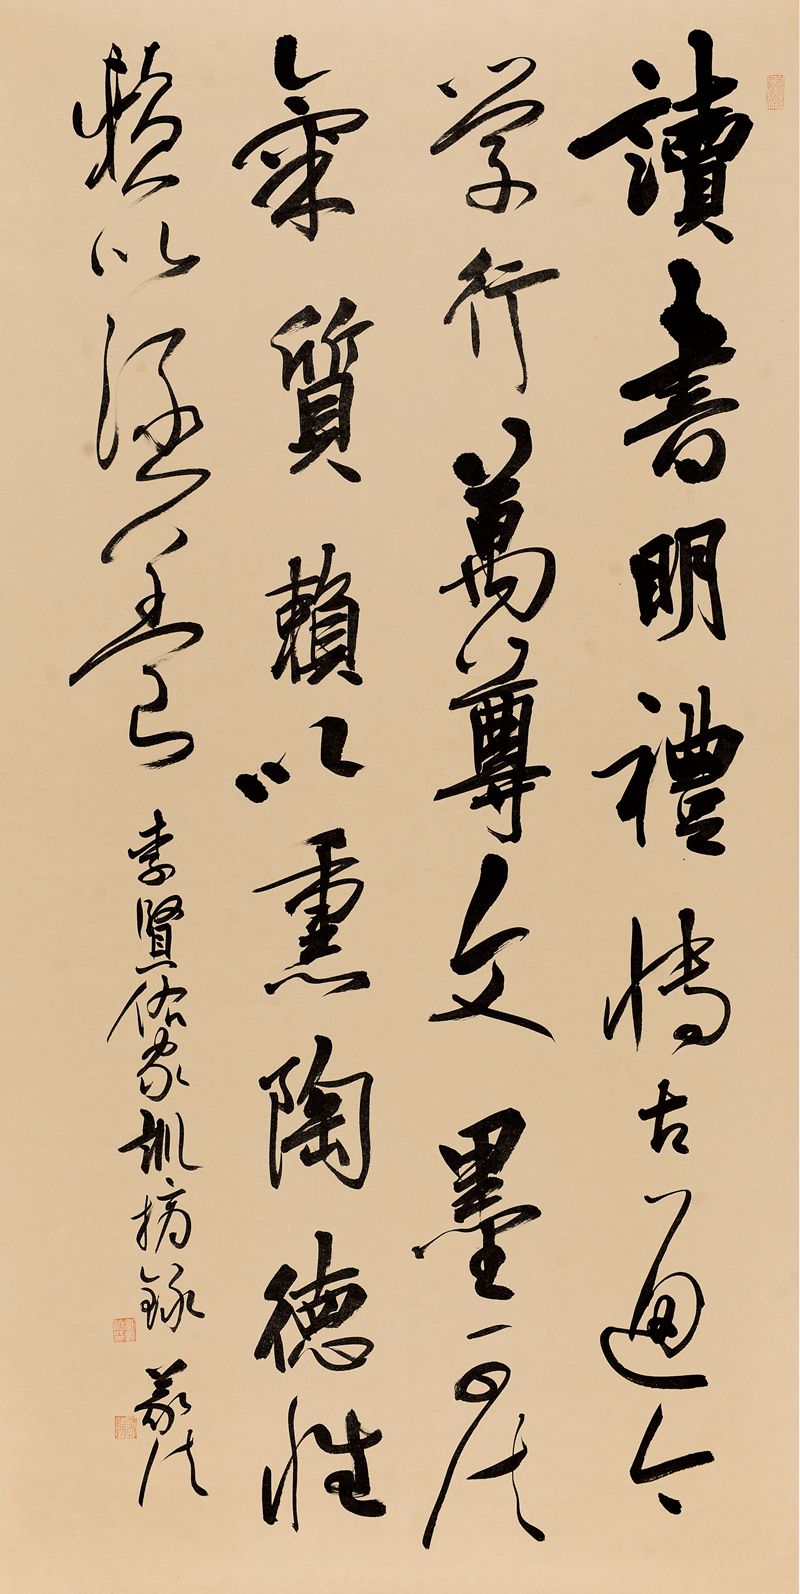 讀書明禮博古通今
学行萬尊文墨可法
氣質賴以熏陶德性
賴以涵養
李賢佑家訓摘錄